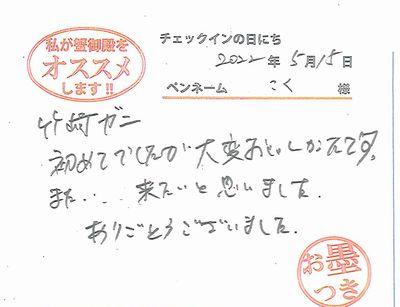 私が蟹御殿を
オススメ
します!!
チェックインの日にち
2022年5月15日
ペンネーム こく 様
竹崎ガニ
初めてでしたが大変おいしかったです。
また... 来たいと思いました.
ありがとうございました.
お墨
つき